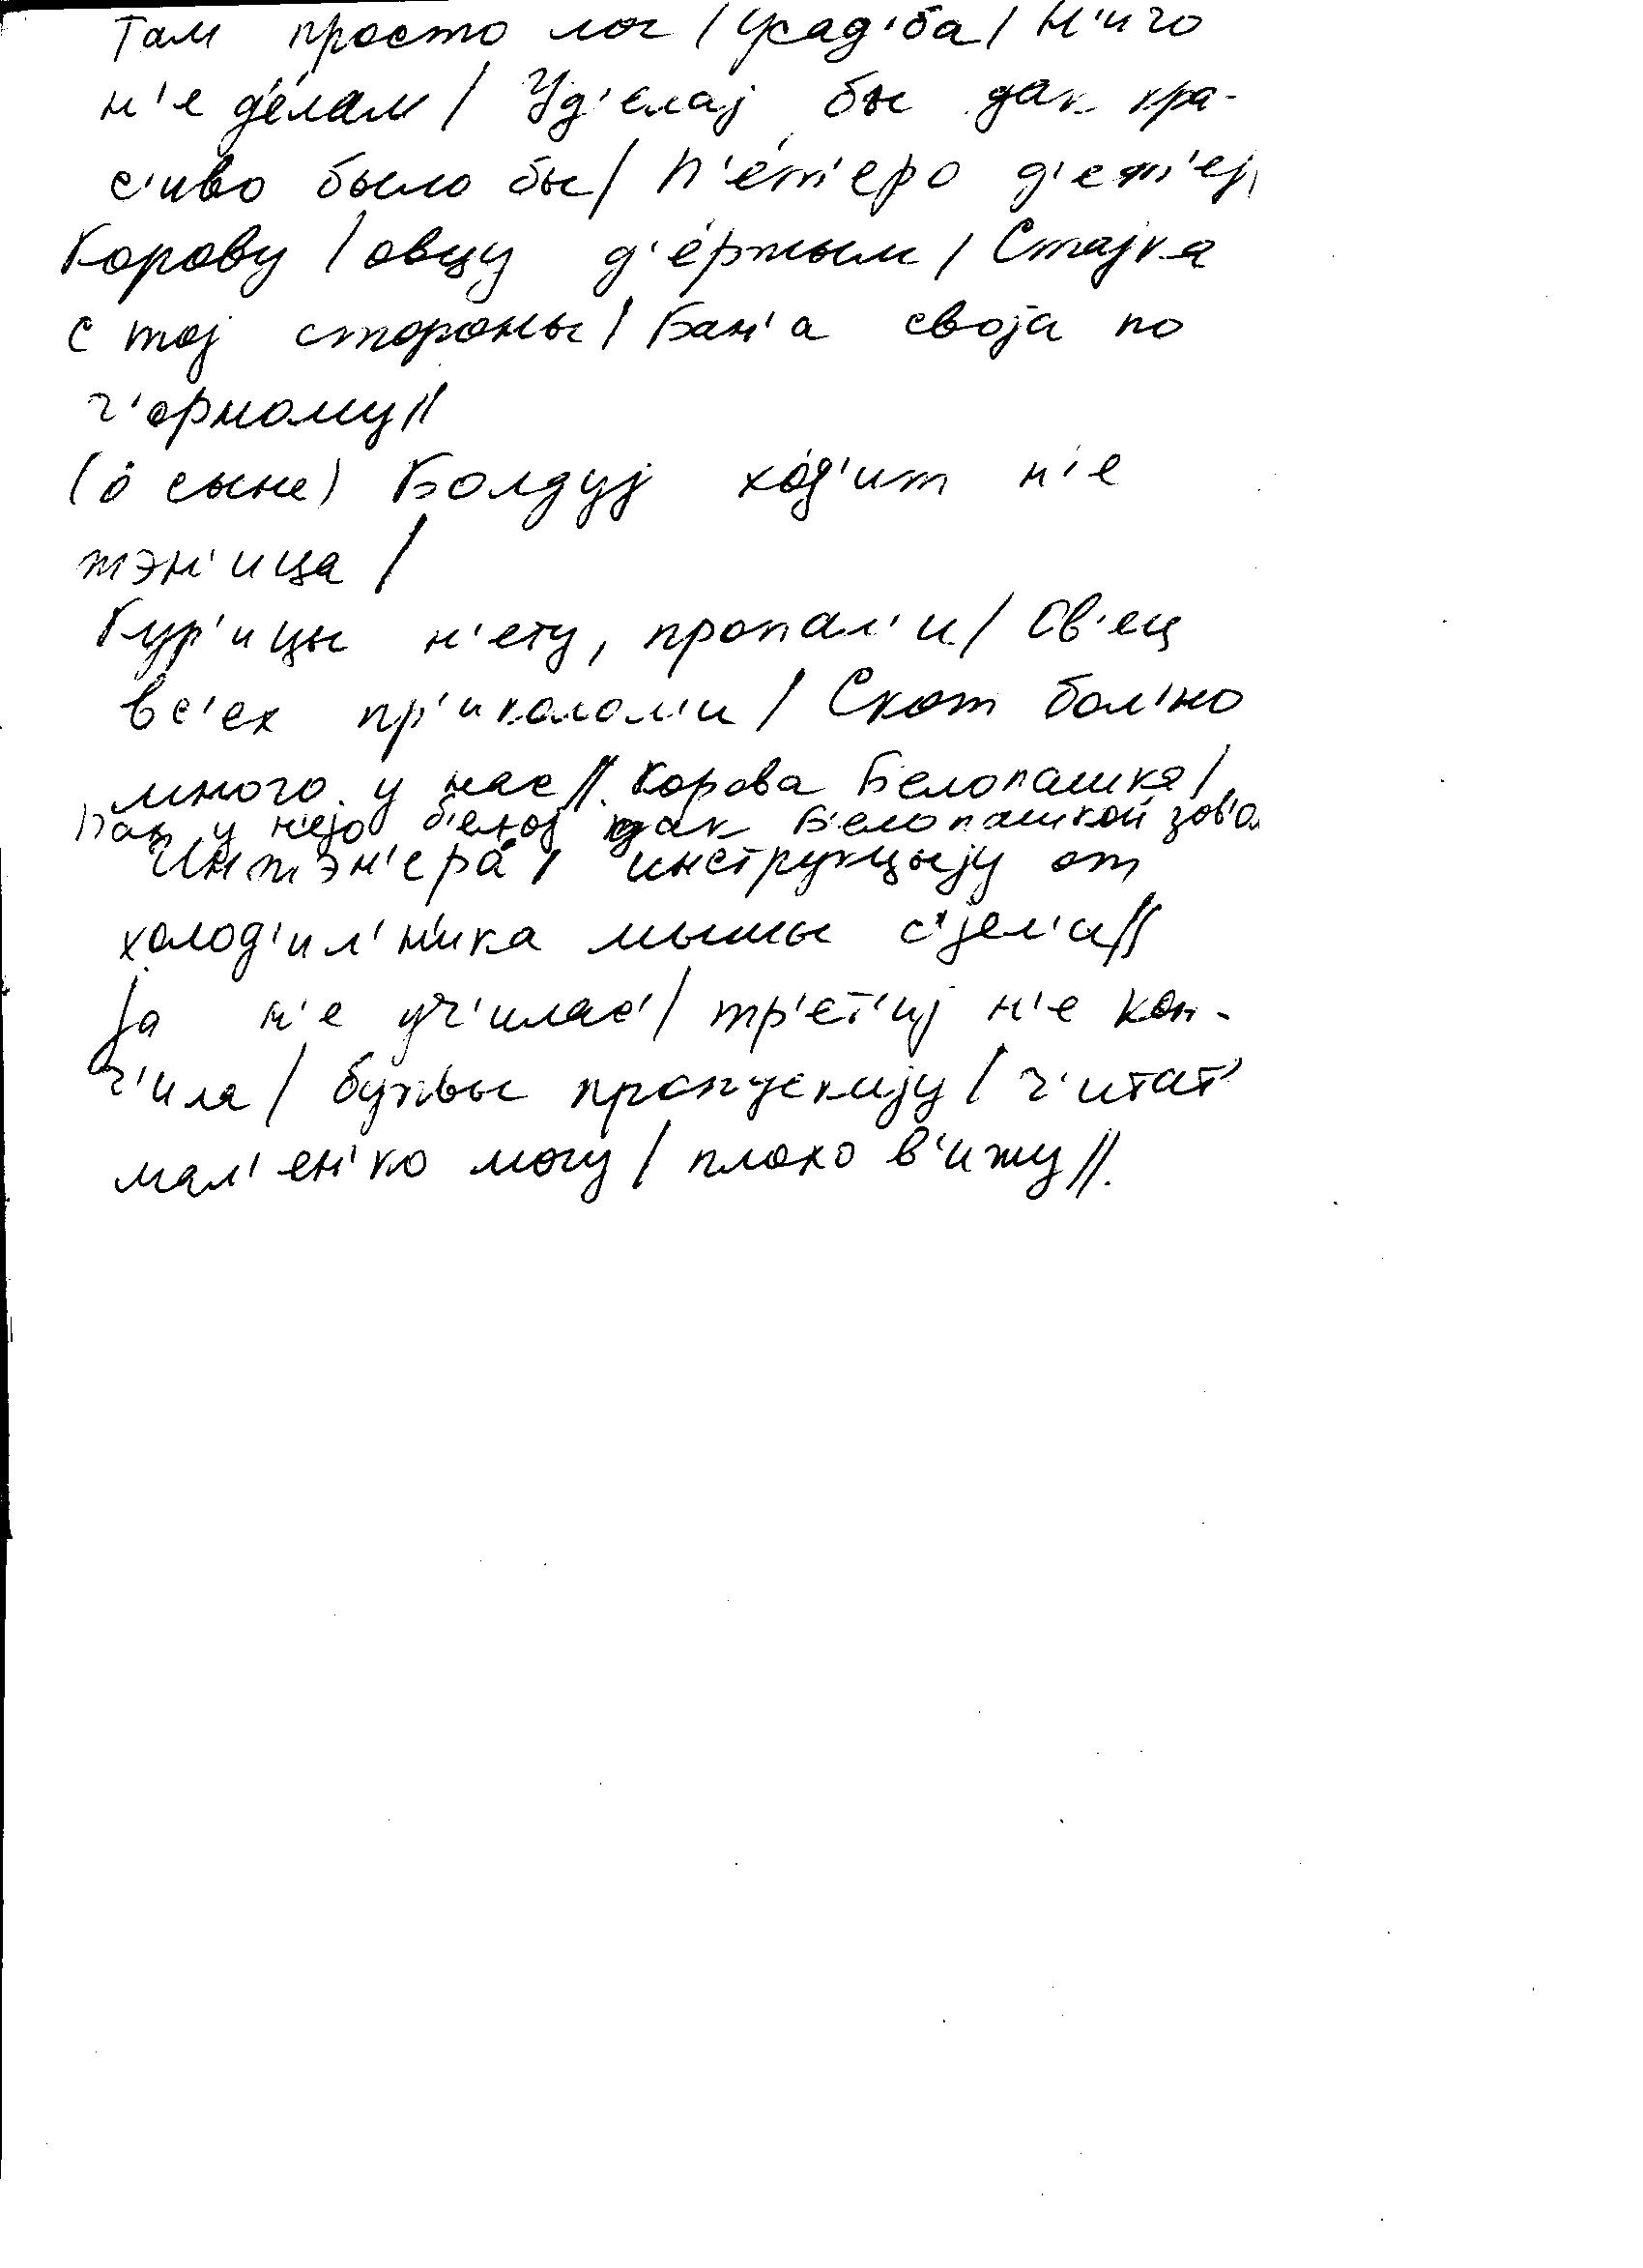 Там просто лог / усад'ба / н'иго
н'е д'елам / Уд'елај бы дак кра-
с'иво было бы / П'ет'еро д'ет'еј,
Корову / овцу д'ержым / Стајка
с тој стороны / Бан'а своја по
ч'орному //
(о сыне) Болдуј ход'ит н'е
жэн'ица /
Кур'ицы н'ету, пропал'и / Ов'ец
вс'ех пр'иколол'и / Скот бол'но
много у нас // Корова Белопашка /
Пах у н'ејо б'елој дак Б'елопашкой зов'о
Инжэн'ера / инструкцыју от
холод'ил'н'ика мышы с'јел'и //
Ја н'е уч'илас' / тр'ет'иј н'е кон-
ч'ила / буквы пропускају / ч'итат'
мал'ен'ко могу / плохо в'ижу //.